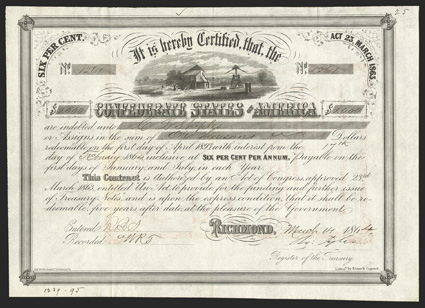 25
SIX PER CENT.
It is hereby Certified, that, the
ACT 23, MARCH 1863.
No.
No.
CONFEDERATE STATES OF AMERICA.
are indebted unto
or Assigns in the sum of Dollars
redeemable on the first day of April 1893 with interest from the 17th
day of February 1864 inclusive at SIX PER CENT PER ANNUM, Payable on the
first days of January and July, in each Year.
This Contract is Authorized by an Act of Congress, approved 23rd
March 1863, entitled An Act to provide for the funding and further issue
of Treasury Notes, and is upon the express condition, that it shall be re-
deemable, five years, after date, at the pleasure of the Government.
Entered
Recorded
RICHMOND, March 1864
Register of the Treasury
1239-95